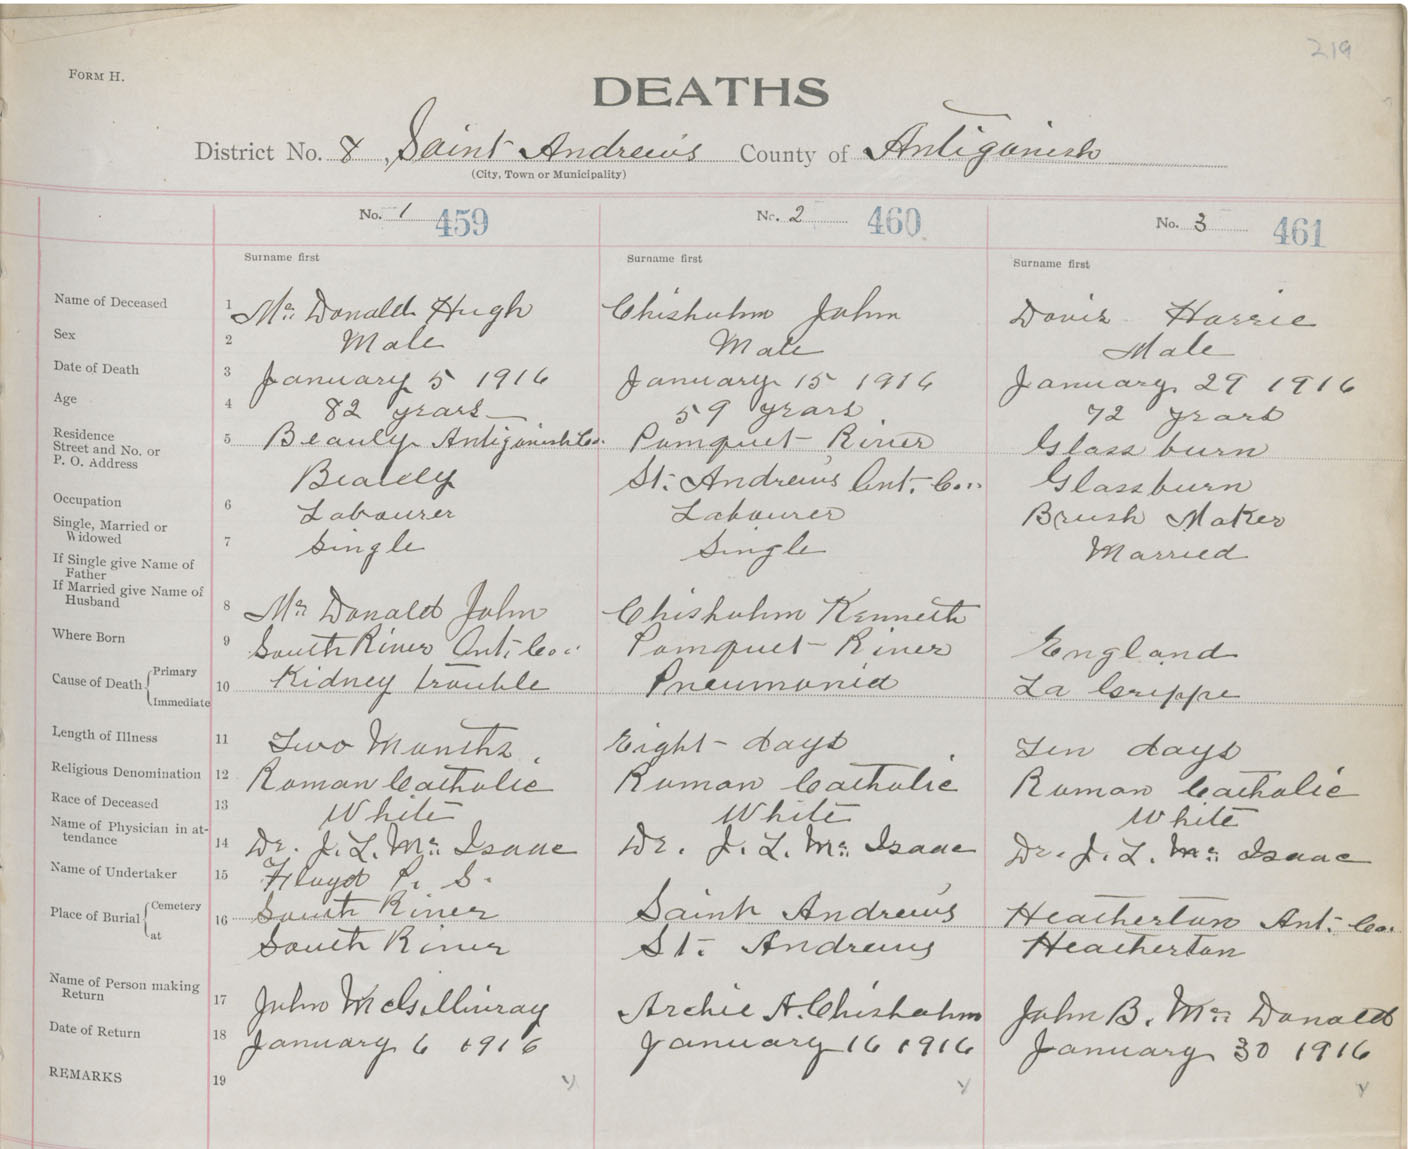 219
FORM H.
DEATHS
District No. 8, Saint Andrew's County of Antigonish
(City, Town or Municipality)
No. 1 459 No. 2 460 No. 3 461
Surname first Surname first Surname first
Name of Deceased 1 Mc Donald Hugh Chisholm John Davis Harrie
Sex 2 Male Male Male
Date of Death 3 January 5 1916 January 15 1916 January 29 1916
Age 4 82 years 59 years 72 years
Residence 5 Beauly Antigonish Co. Pomquet River Glassburn
Street and No. or
P. O. Address Beauly St. Andrew's Ant. Co. Glassburn
Occupation 6 Labourer Labourer Brush Maker
Single, Married or
Widowed 7 Single Single Married
If Single give Name of
Father
If Married give Name of
Husband 8 Mc Donald John Chisholm Kenneth
Where Born 9 South River Ant. Co. Pomquet River England
Cause of Death { Primary
Immediate 10 Kidney trouble Pneumonia La Grippe
Length of Illness 11 Two Months Eight days Ten days
Religious Denomination 12 Roman Catholic Roman Catholic Roman Catholic
Race of Deceased 13 White White White
Name of Physician in at-
tendance 14 Dr. J. L. Mc Isaac Dr. J. L. Mc Isaac Dr. J. L. Mc Isaac
Name of Undertaker 15 Floyd P. S.
Place of Burial { Cemetery 16 South River Saint Andrew's Heatherton Ant. Co.
at South River St. Andrews Heatherton
Name of Person making
Return 17 John McGillivray Archie A. Chisholm John B. Mc Donald
Date of Return 18 January 6 1916 January 16 1916 January 30 1916
REMARKS 19